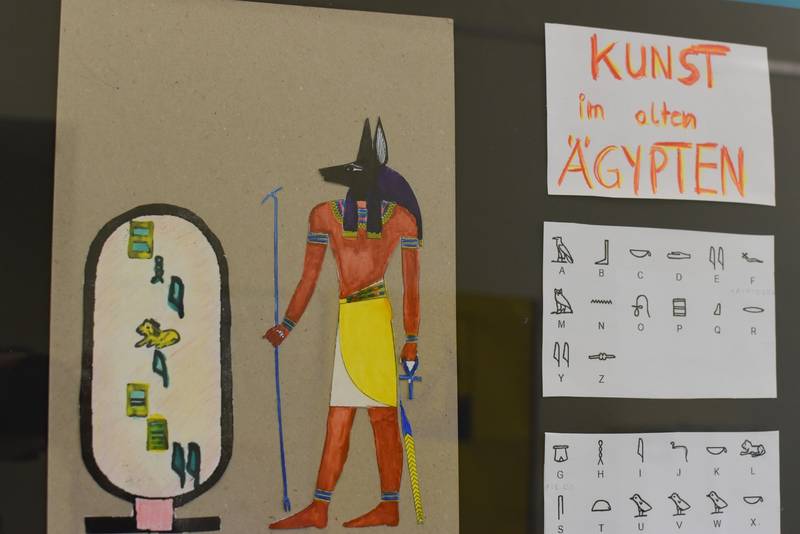 KUNST
im alten
ÄGYPTEN
A B C D E F
M N O P Q R
Y Z
G H I J K L
S T U V W X